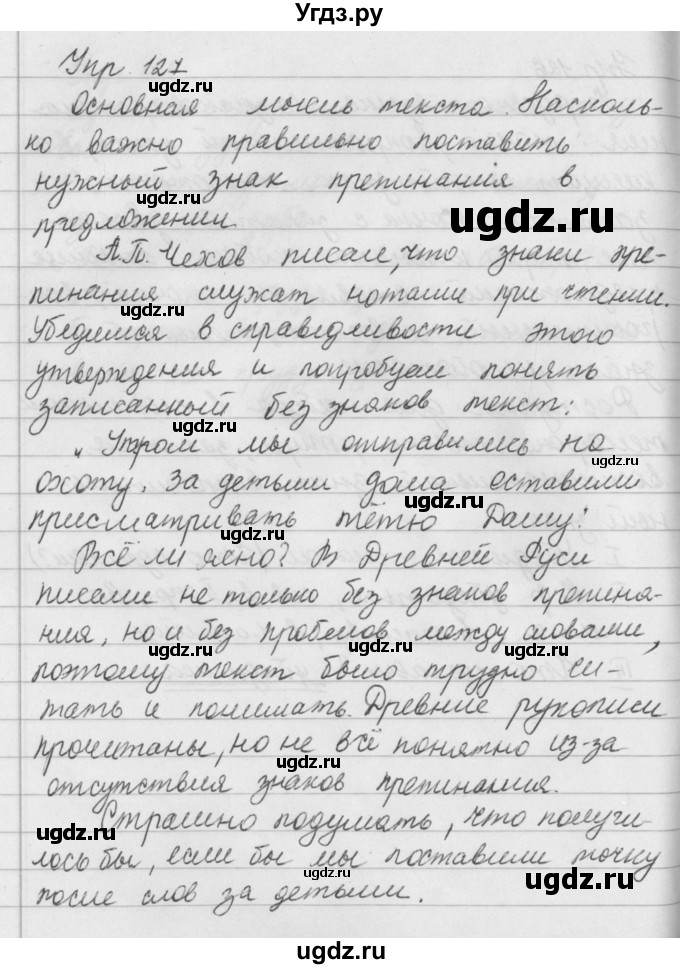 Угдз.ру
Упр. 127
Основная мысль текста. Насколь-
ugdz.ru
ко важно правильно поставить
нужный знак препинания в
ugdz.ru
ugdz.ru
предложении.
А.П. Чехов писал, что знаки пре-
пинания служат нотами при чтении.
ugdz.ru
Убедимся в справедливости этого
утверждения и попробуем понять
ugdz.ru
записанный без знаков текст:
„Утром мы отправились на
ugdz.ru
охоту. За детьми дома оставили
ugdz.ru
присматривать тётю Дашу!
Всё ли ясно? В Древней Руси
ugdz.ru
писали не только без знаков препина-
ния, но и без пробелов между словами,
ugdz.ru
поэтому текст было трудно чи-
тать и понимать. Древние рукописи
ugdz.ru
прочитаны, но не всё понятно из-за
ugdz.ru
отсутствия знаков препинания.
Страшно подумать, что получи-
ugdz.ru
лось бы, если бы мы поставили точку
ugdz.ru
после слов за детьми.
ugdz.ru
ugdz.ru